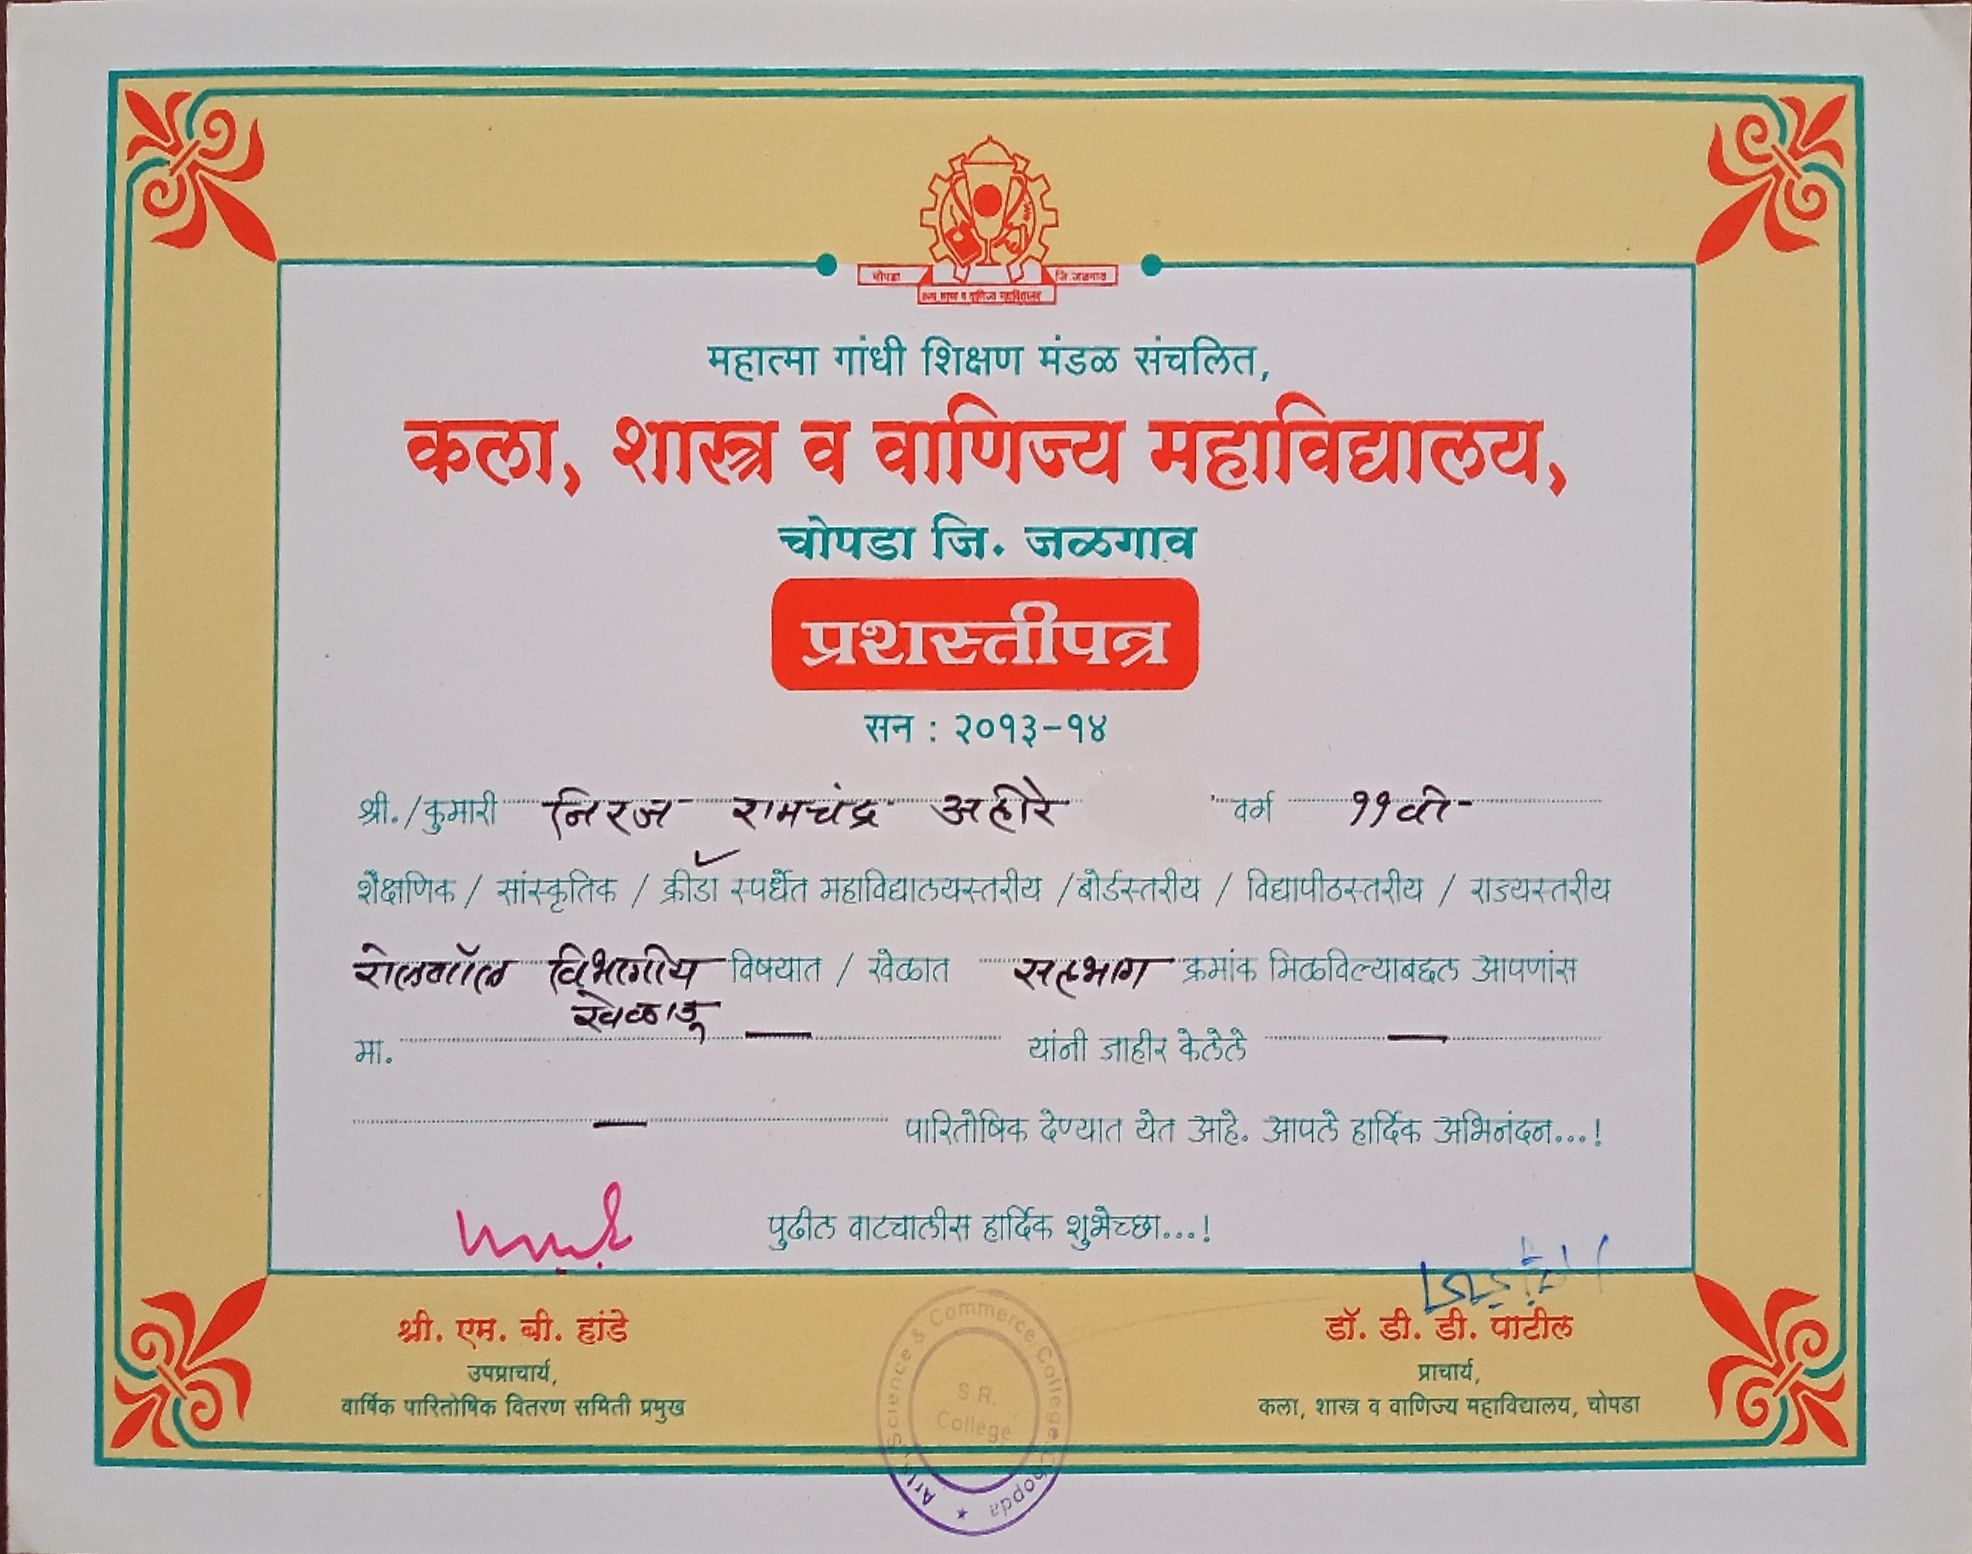 चोपडा जि. जळगाव
कला शास्त्र व वाणिज्य महाविद्यालय
महात्मा गांधी शिक्षण मंडळ संचलित,
कला, शास्त्र व वाणिज्य महाविद्यालय,
चोपडा जि. जळगाव
प्रशस्तीपत्र
सन : २०१३-१४
श्री./कुमारी निरज रामचंद्र अहीरे वर्ग ११वी
शैक्षणिक / सांस्कृतिक / क्रीडा स्पर्धेत महाविद्यालयस्तरीय /बोर्डस्तरीय / विद्यापीठस्तरीय / राज्यस्तरीय
रोलबॉल विभागीय विषयात / खेळात सहभाग क्रमांक मिळविल्याबद्दल आपणांस
खेळाडू
मा. — यांनी जाहीर केलेले —
— पारितोषिक देण्यात येत आहे. आपले हार्दिक अभिनंदन...!
पुढील वाटचालीस हार्दिक शुभेच्छा...!
श्री. एम. बी. हांडे
उपप्राचार्य,
वार्षिक पारितोषिक वितरण समिती प्रमुख
डॉ. डी. डी. पाटील
प्राचार्य,
कला, शास्त्र व वाणिज्य महाविद्यालय, चोपडा
Arts, Science & Commerce College, Chopda
S.R.
College